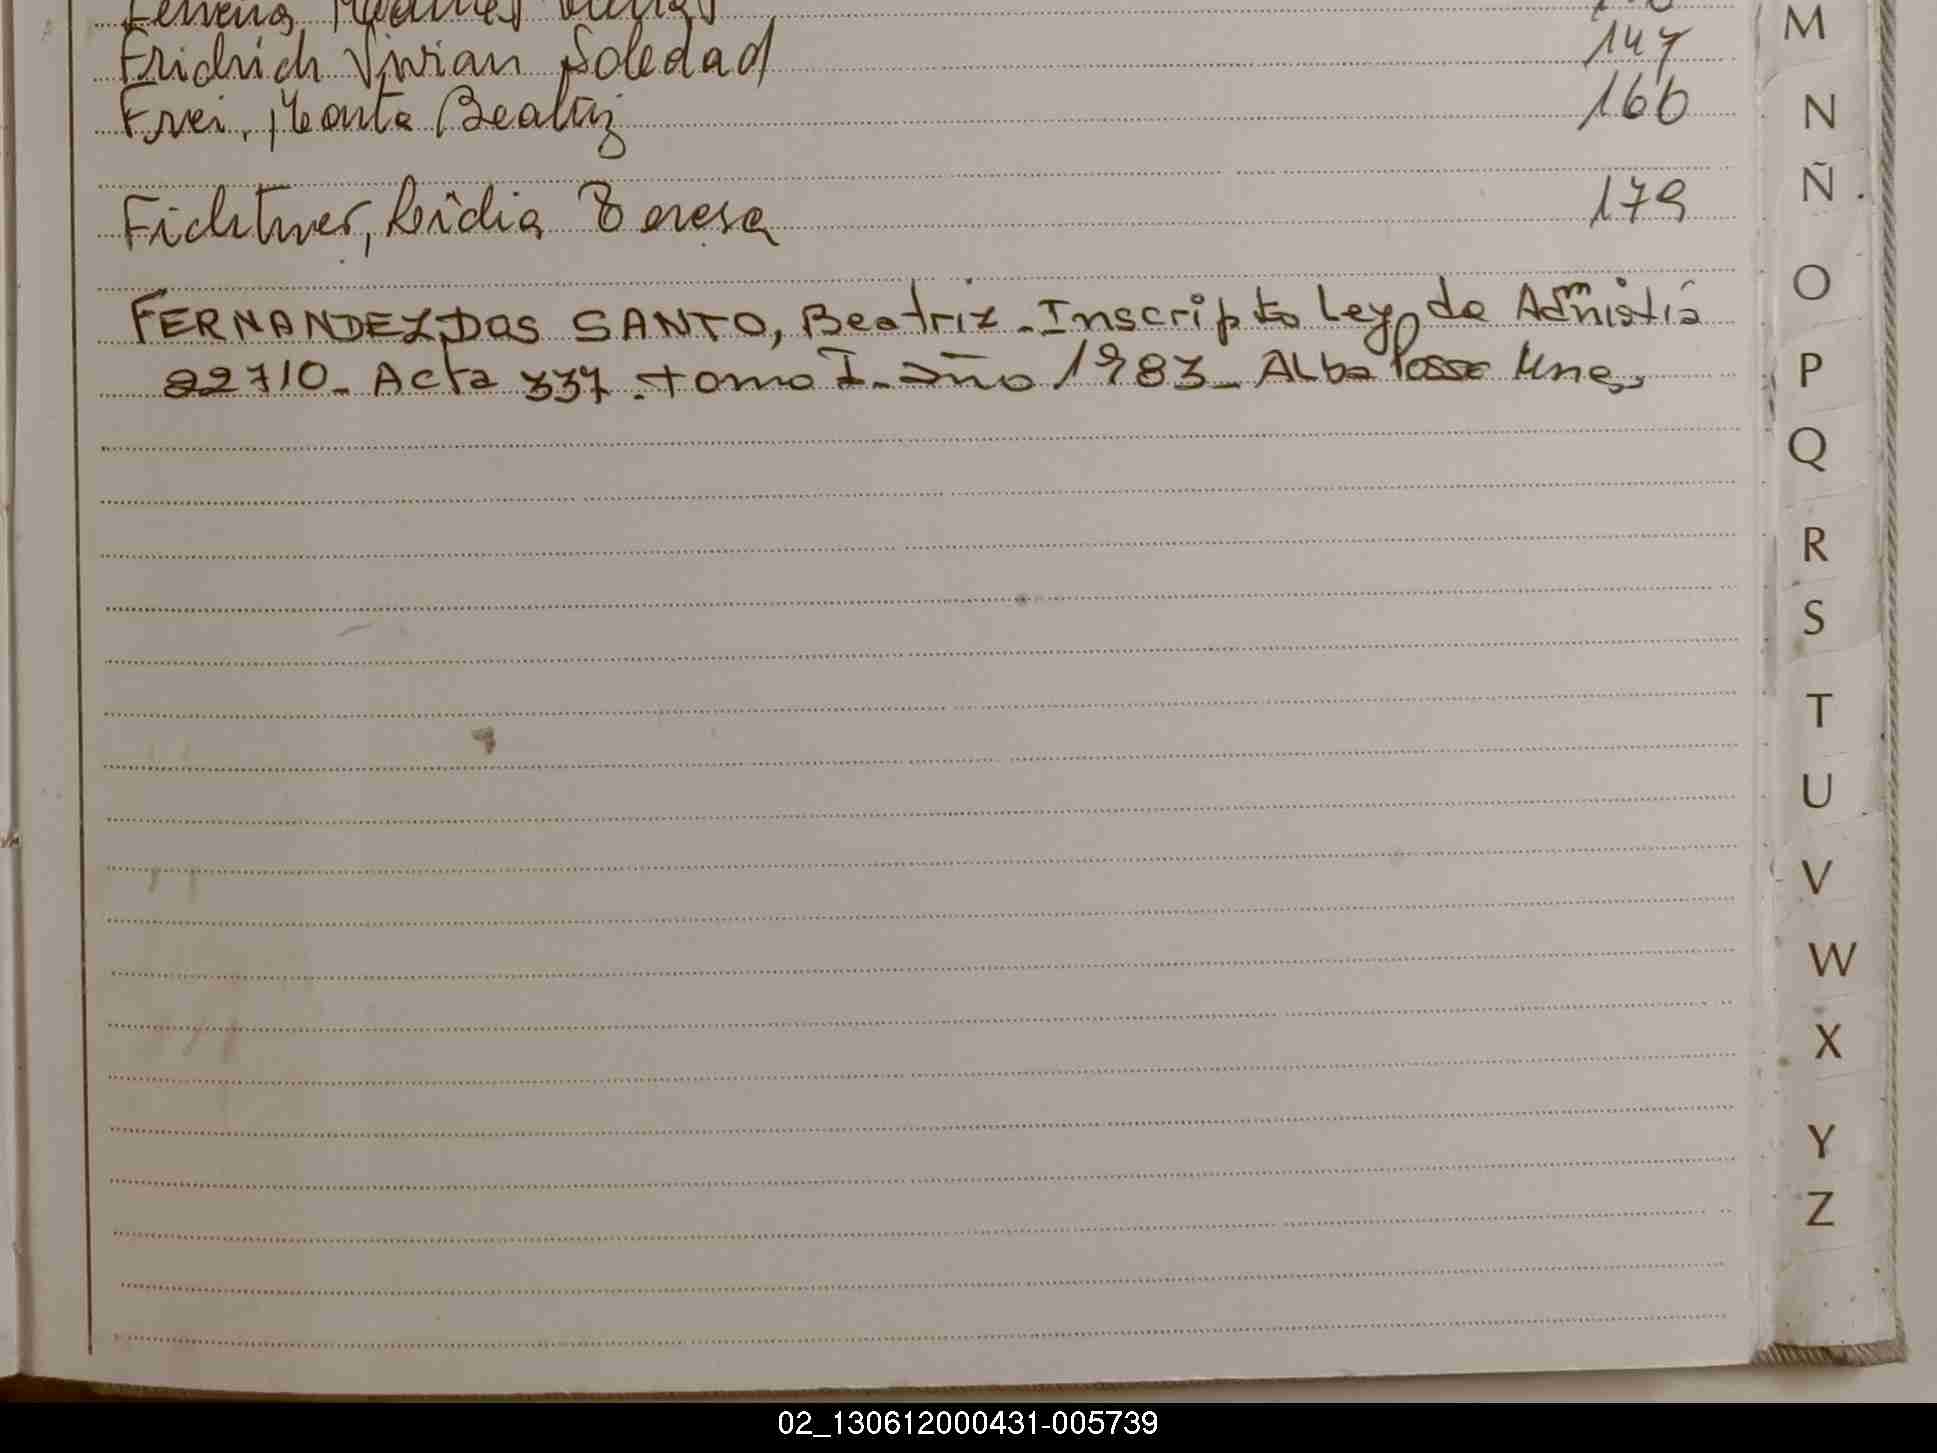 Fridrich Vivian Soledad 147
Frei, Marta Beatriz 166
Fichtner, Lidia Teresa 179
FERNANDEZ Dos SANTO, Beatriz - Inscripto Ley de Admistia
22710 - Acta 337 - tomo I - año 1983 - Alba Posse Mnes
M
N
Ñ
O
P
Q
R
S
T
U
V
W
X
Y
Z
02_130612000431-005739